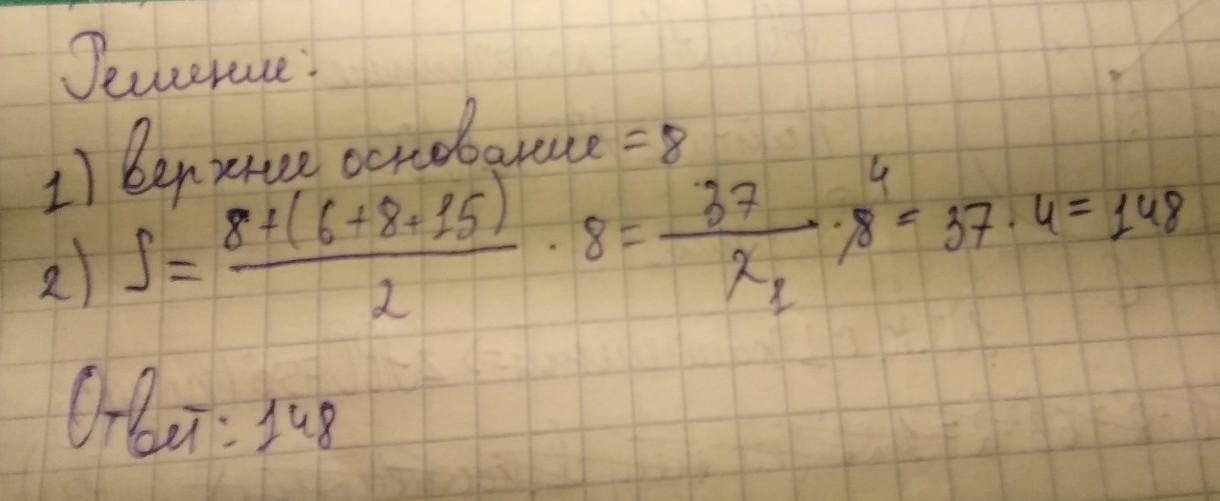 Решение:
1) Верхнее основание = 8
2) S = \frac{8+(6+8+15)}{2} · 8 = \frac{37}{\cancel{2}_1} · \cancel{8}^4 = 37 · 4 = 148
Ответ: 148